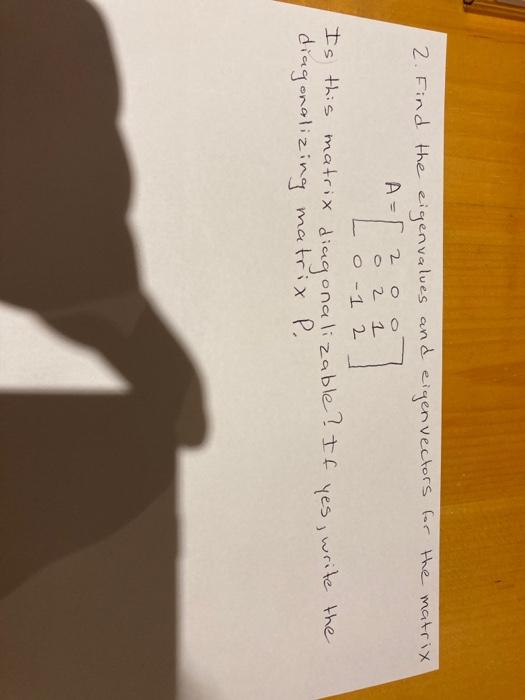 2. Find the eigenvalues and eigenvectors for the matrix
A = [ 2 0 0
0 2 1
0 -1 2 ]
Is this matrix diagonalizable? If yes, write the
diagonalizing matrix P.